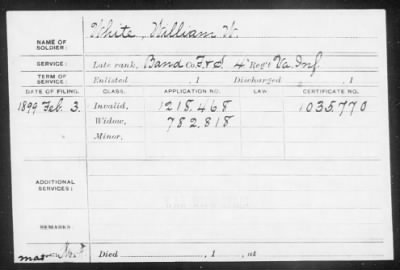 NAME OF SOLDIER: White, William W.
SERVICE: Late rank, Band Co. F. & S. 4" Reg't Va. Inf
TERM OF SERVICE: Enlisted , 1 Discharged , 1
DATE OF FILING. CLASS. APPLICATION NO. LAW. CERTIFICATE NO.
1899 Feb. 3. Invalid, 1218.468 1035.770
Widow, 782.818
Minor,
ADDITIONAL SERVICES:
REMARKS:
Died , 1 , at